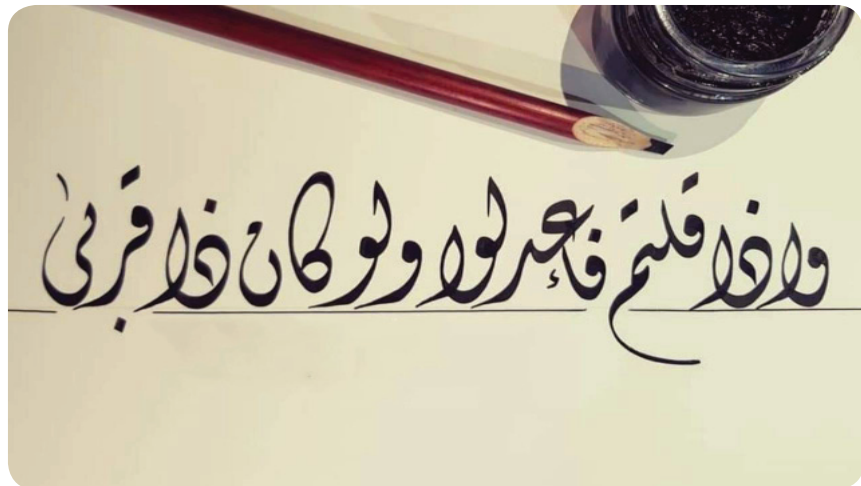 واذا قلتم فاعدلوا ولو كان ذا قربى